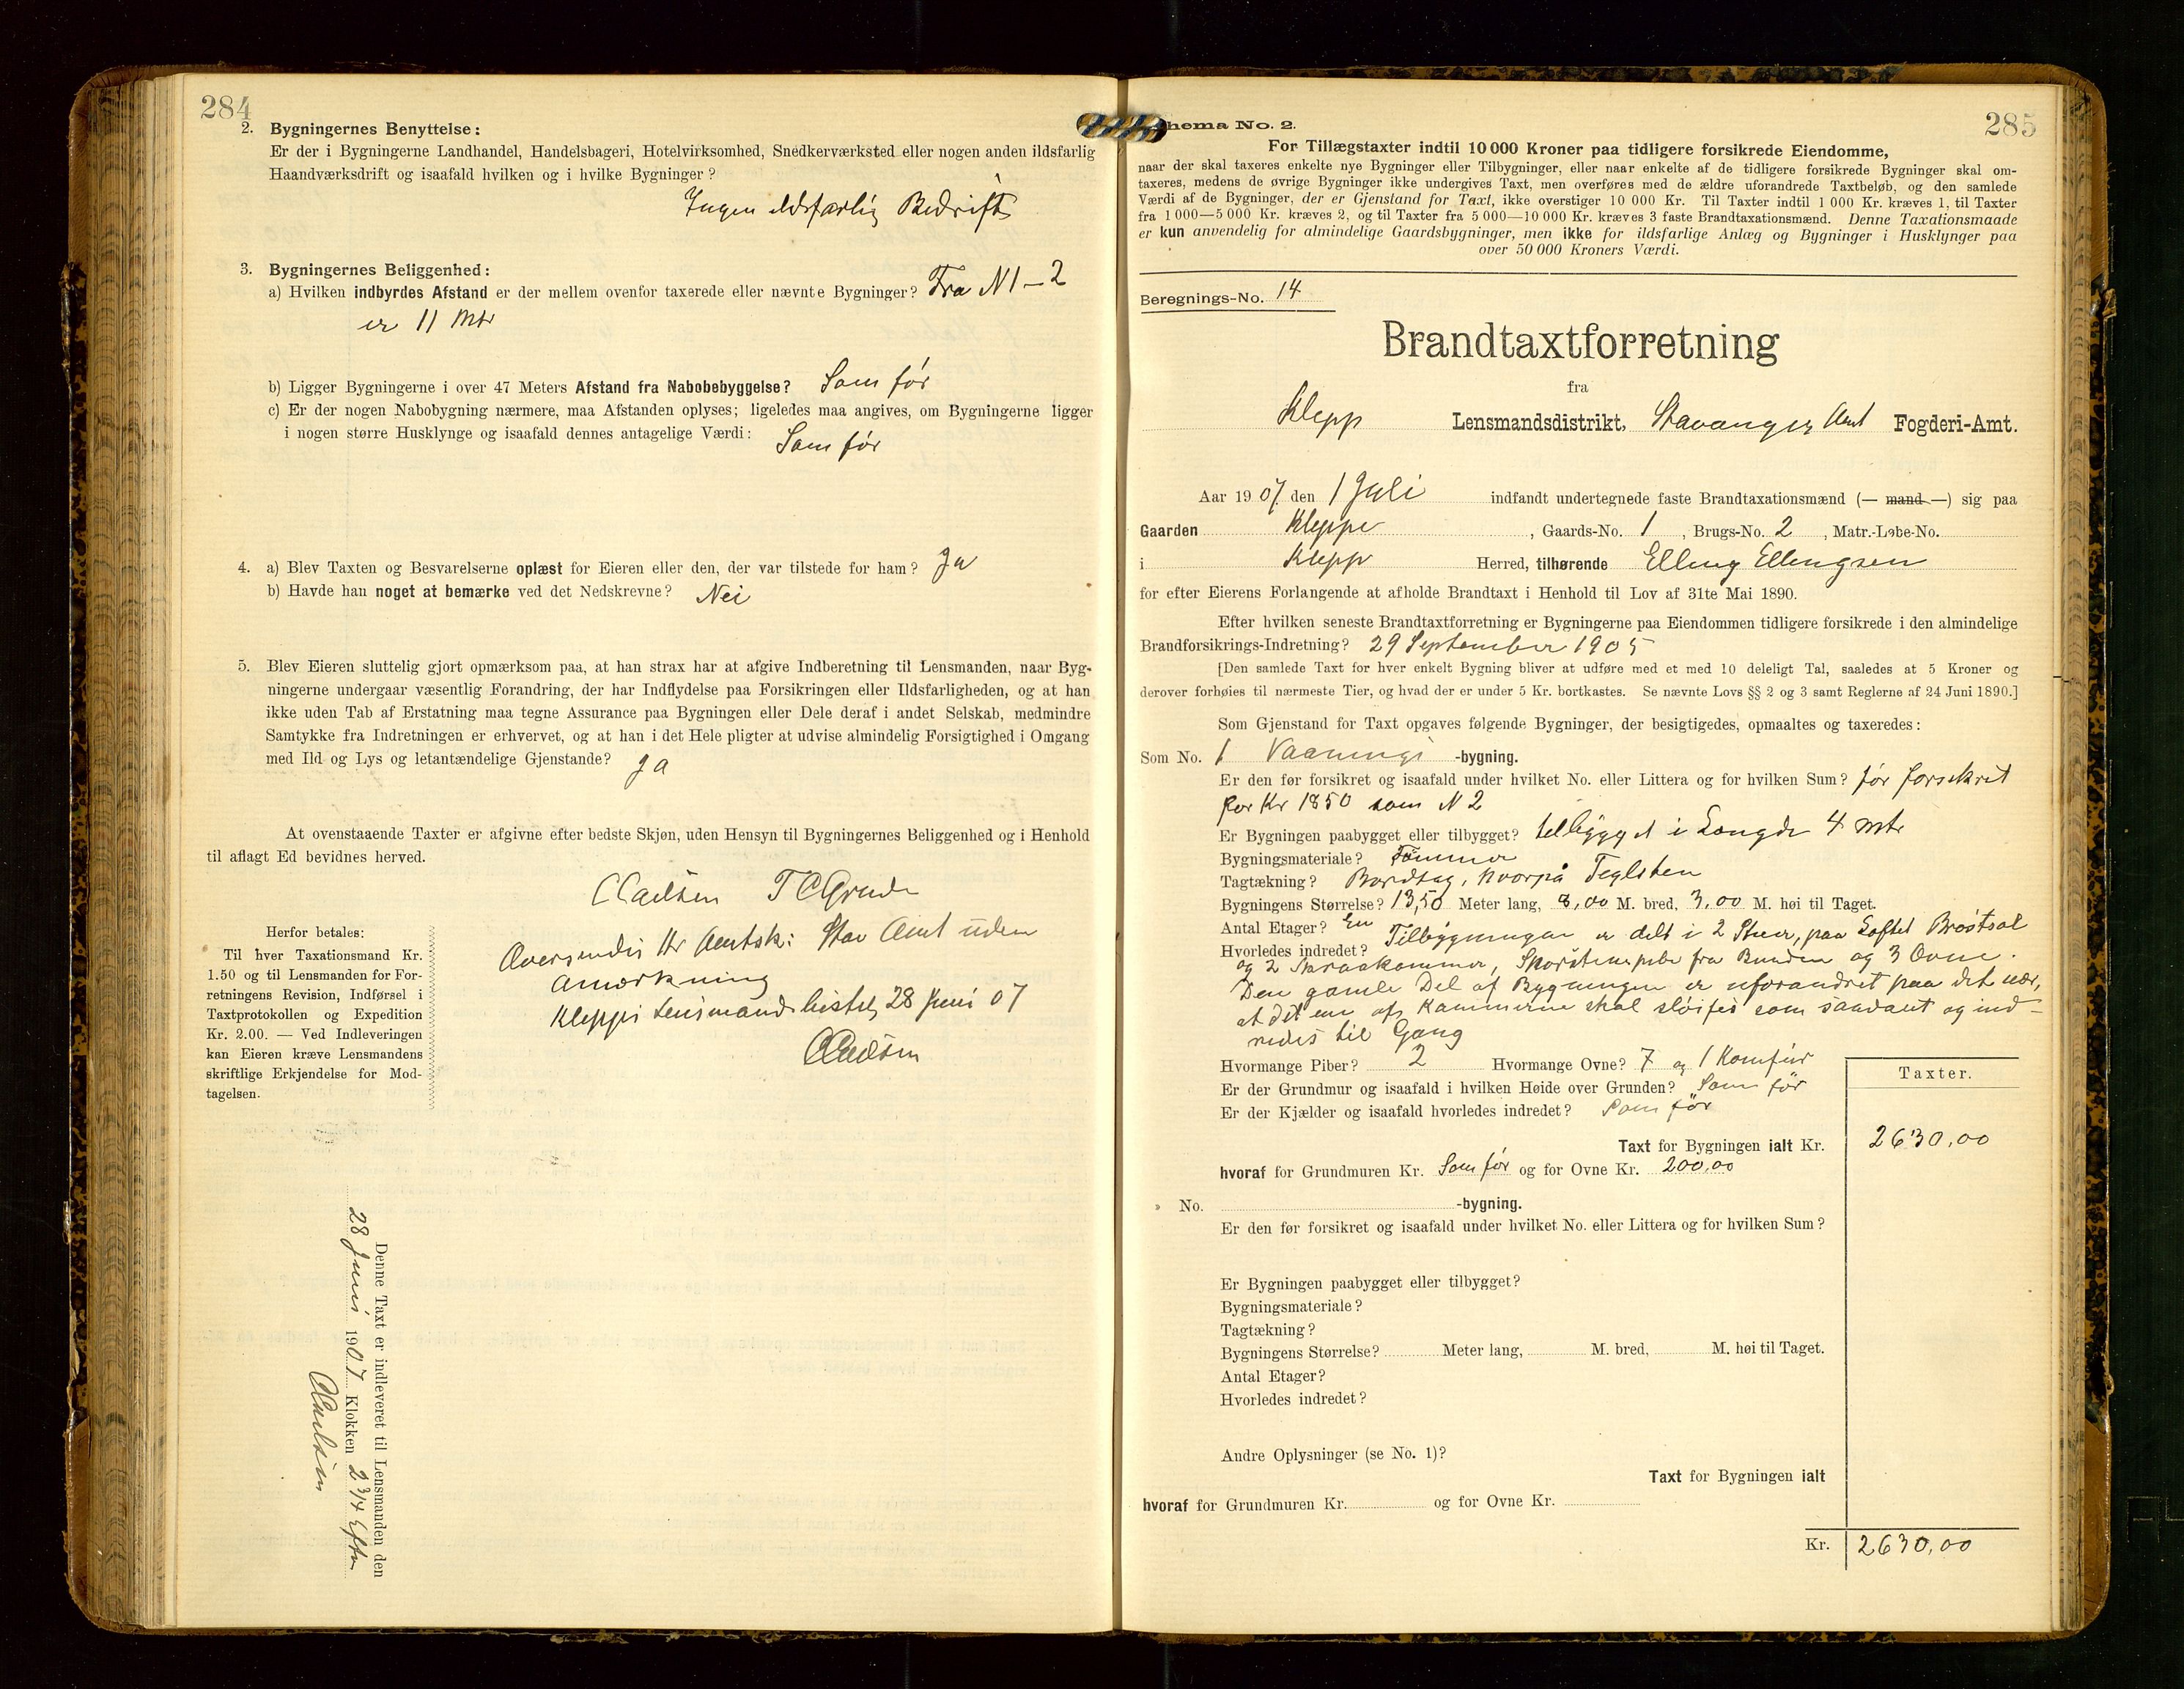 284
2. Bygningernes Benyttelse:
Er der i Bygningerne Landhandel, Handelsbageri, Hotelvirksomhed, Snedkerværksted eller nogen anden ildsfarlig
Haandværksdrift og isaafald hvilken og i hvilke Bygninger?
Ingen ildsfarlig Bedrift
3. Bygningernes Beliggenhed:
a) Hvilken indbyrdes Afstand er der mellem ovenfor taxerede eller nævnte Bygninger? Fra N 1 – 2
er 11 Mtr
b) Ligger Bygningerne i over 47 Meters Afstand fra Nabobebyggelse? Som før
c) Er der nogen Nabobygning nærmere, maa Afstanden oplyses; ligeledes maa angives, om Bygningerne ligger
i nogen større Husklynge og isaafald dennes antagelige Værdi: Som før
4. a) Blev Taxten og Besvarelserne oplæst for Eieren eller den, der var tilstede for ham? Ja
b) Havde han noget at bemærke ved det Nedskrevne? Nei
5. Blev Eieren sluttelig gjort opmærksom paa, at han strax har at afgive Indberetning til Lensmanden, naar Byg-
ningerne undergaar væsentlig Forandring, der har Indflydelse paa Forsikringen eller Ildsfarligheden, og at han
ikke uden Tab af Erstatning maa tegne Assurance paa Bygningen eller Dele deraf i andet Selskab, medmindre
Samtykke fra Indretningen er erhvervet, og at han i det Hele pligter at udvise almindelig Forsigtighed i Omgang
med Ild og Lys og letantændelige Gjenstande? Ja
At ovenstaaende Taxter er afgivne efter bedste Skjøn, uden Hensyn til Bygningernes Beliggenhed og i Henhold
til aflagt Ed bevidnes herved.
T C Grude
Oversendes Hr Amtsk: Stav Amt uden
Anmærkning
Klepps Lensmandsbestil 28 Juni 07
Herfor betales:
Til hver Taxationsmand Kr.
1.50 og til Lensmanden for For-
retningens Revision, Indførsel i
Taxtprotokollen og Expedition
Kr. 2.00. — Ved Indleveringen
kan Eieren kræve Lensmandens
skriftlige Erkjendelse for Mod-
tagelsen.
Denne Taxt er indleveret til Lensmanden den
28 Juni 1907 Klokken 2 3/4 Efter
285
hema No. 2.
For Tillægstaxter indtil 10 000 Kroner paa tidligere forsikrede Eiendomme,
naar der skal taxeres enkelte nye Bygninger eller Tilbygninger, eller naar enkelte af de tidligere forsikrede Bygninger skal om-
taxeres, medens de øvrige Bygninger ikke undergives Taxt, men overføres med de ældre uforandrede Taxtbeløb, og den samlede
Værdi af de Bygninger, der er Gjenstand for Taxt, ikke overstiger 10 000 Kr. Til Taxter indtil 1 000 Kr. kræves 1, til Taxter
fra 1 000—5 000 Kr. kræves 2, og til Taxter fra 5 000—10 000 Kr. kræves 3 faste Brandtaxationsmænd. Denne Taxationsmaade
er kun anvendelig for almindelige Gaardsbygninger, men ikke for ildsfarlige Anlæg og Bygninger i Husklynger paa
over 50 000 Kroners Værdi.
Beregnings-No. 14
Brandtaxtforretning
fra
Klepp Lensmandsdistrikt, Stavanger Amt Fogderi-Amt.
Aar 1907 den 1 Juli indfandt undertegnede faste Brandtaxationsmænd (— mand —) sig paa
Gaarden Kleppe, Gaards-No. 1, Brugs-No. 2, Matr.-Løbe-No.
i Klepp Herred, tilhørende Elling Ellingsen
for efter Eierens Forlangende at afholde Brandtaxt i Henhold til Lov af 31te Mai 1890.
Efter hvilken seneste Brandtaxtforretning er Bygningerne paa Eiendommen tidligere forsikrede i den almindelige
Brandforsikrings-Indretning? 29 September 1905
[Den samlede Taxt for hver enkelt Bygning bliver at udføre med et med 10 deleligt Tal, saaledes at 5 Kroner og
derover forhøies til nærmeste Tier, og hvad der er under 5 Kr. bortkastes. Se nævnte Lovs §§ 2 og 3 samt Reglerne af 24 Juni 1890.]
Som Gjenstand for Taxt opgaves følgende Bygninger, der besigtigedes, opmaaltes og taxeredes:
Som No. 1 Vaanings -bygning.
Er den før forsikret og isaafald under hvilket No. eller Littera og for hvilken Sum? før forsikret
for Kr 1850 som N 2
Er Bygningen paabygget eller tilbygget? tilbygget i Længde 4 Mtr
Bygningsmateriale? Tømmer
Tagtækning? Bordtag, hvorpå Teglsten
Bygningens Størrelse? 13,50 Meter lang, 8,00 M. bred, 3,00 M. høi til Taget.
Antal Etager? En
Hvorledes indredet? Tilbygningen er delt i 2 Stuer, paa Loftet Brøstsal
og 2 Skraakammer, Skorstenspibe fra Bunden og 3 Ovne.
Den gamle Del af Bygningen er uforandret paa det nær,
at det ene af Kammerne skal sløifes som saadant og ind-
redes til Gang
Hvormange Piber? 2 Hvormange Ovne? 7 og 1 Komfur
Er der Grundmur og isaafald i hvilken Høide over Grunden? Som før
Er der Kjælder og isaafald hvorledes indredet? Som før
Taxter.
Taxt for Bygningen ialt Kr. 2630,00
hvoraf for Grundmuren Kr. Som før og for Ovne Kr. 200,00
» No. -bygning.
Er den før forsikret og isaafald under hvilket No. eller Littera og for hvilken Sum?
Er Bygningen paabygget eller tilbygget?
Bygningsmateriale?
Tagtækning?
Bygningens Størrelse? Meter lang, M. bred, M. høi til Taget.
Antal Etager?
Hvorledes indredet?
Andre Oplysninger (se No. 1)?
Taxt for Bygningen ialt
hvoraf for Grundmuren Kr. og for Ovne Kr.
Kr. 2630,00